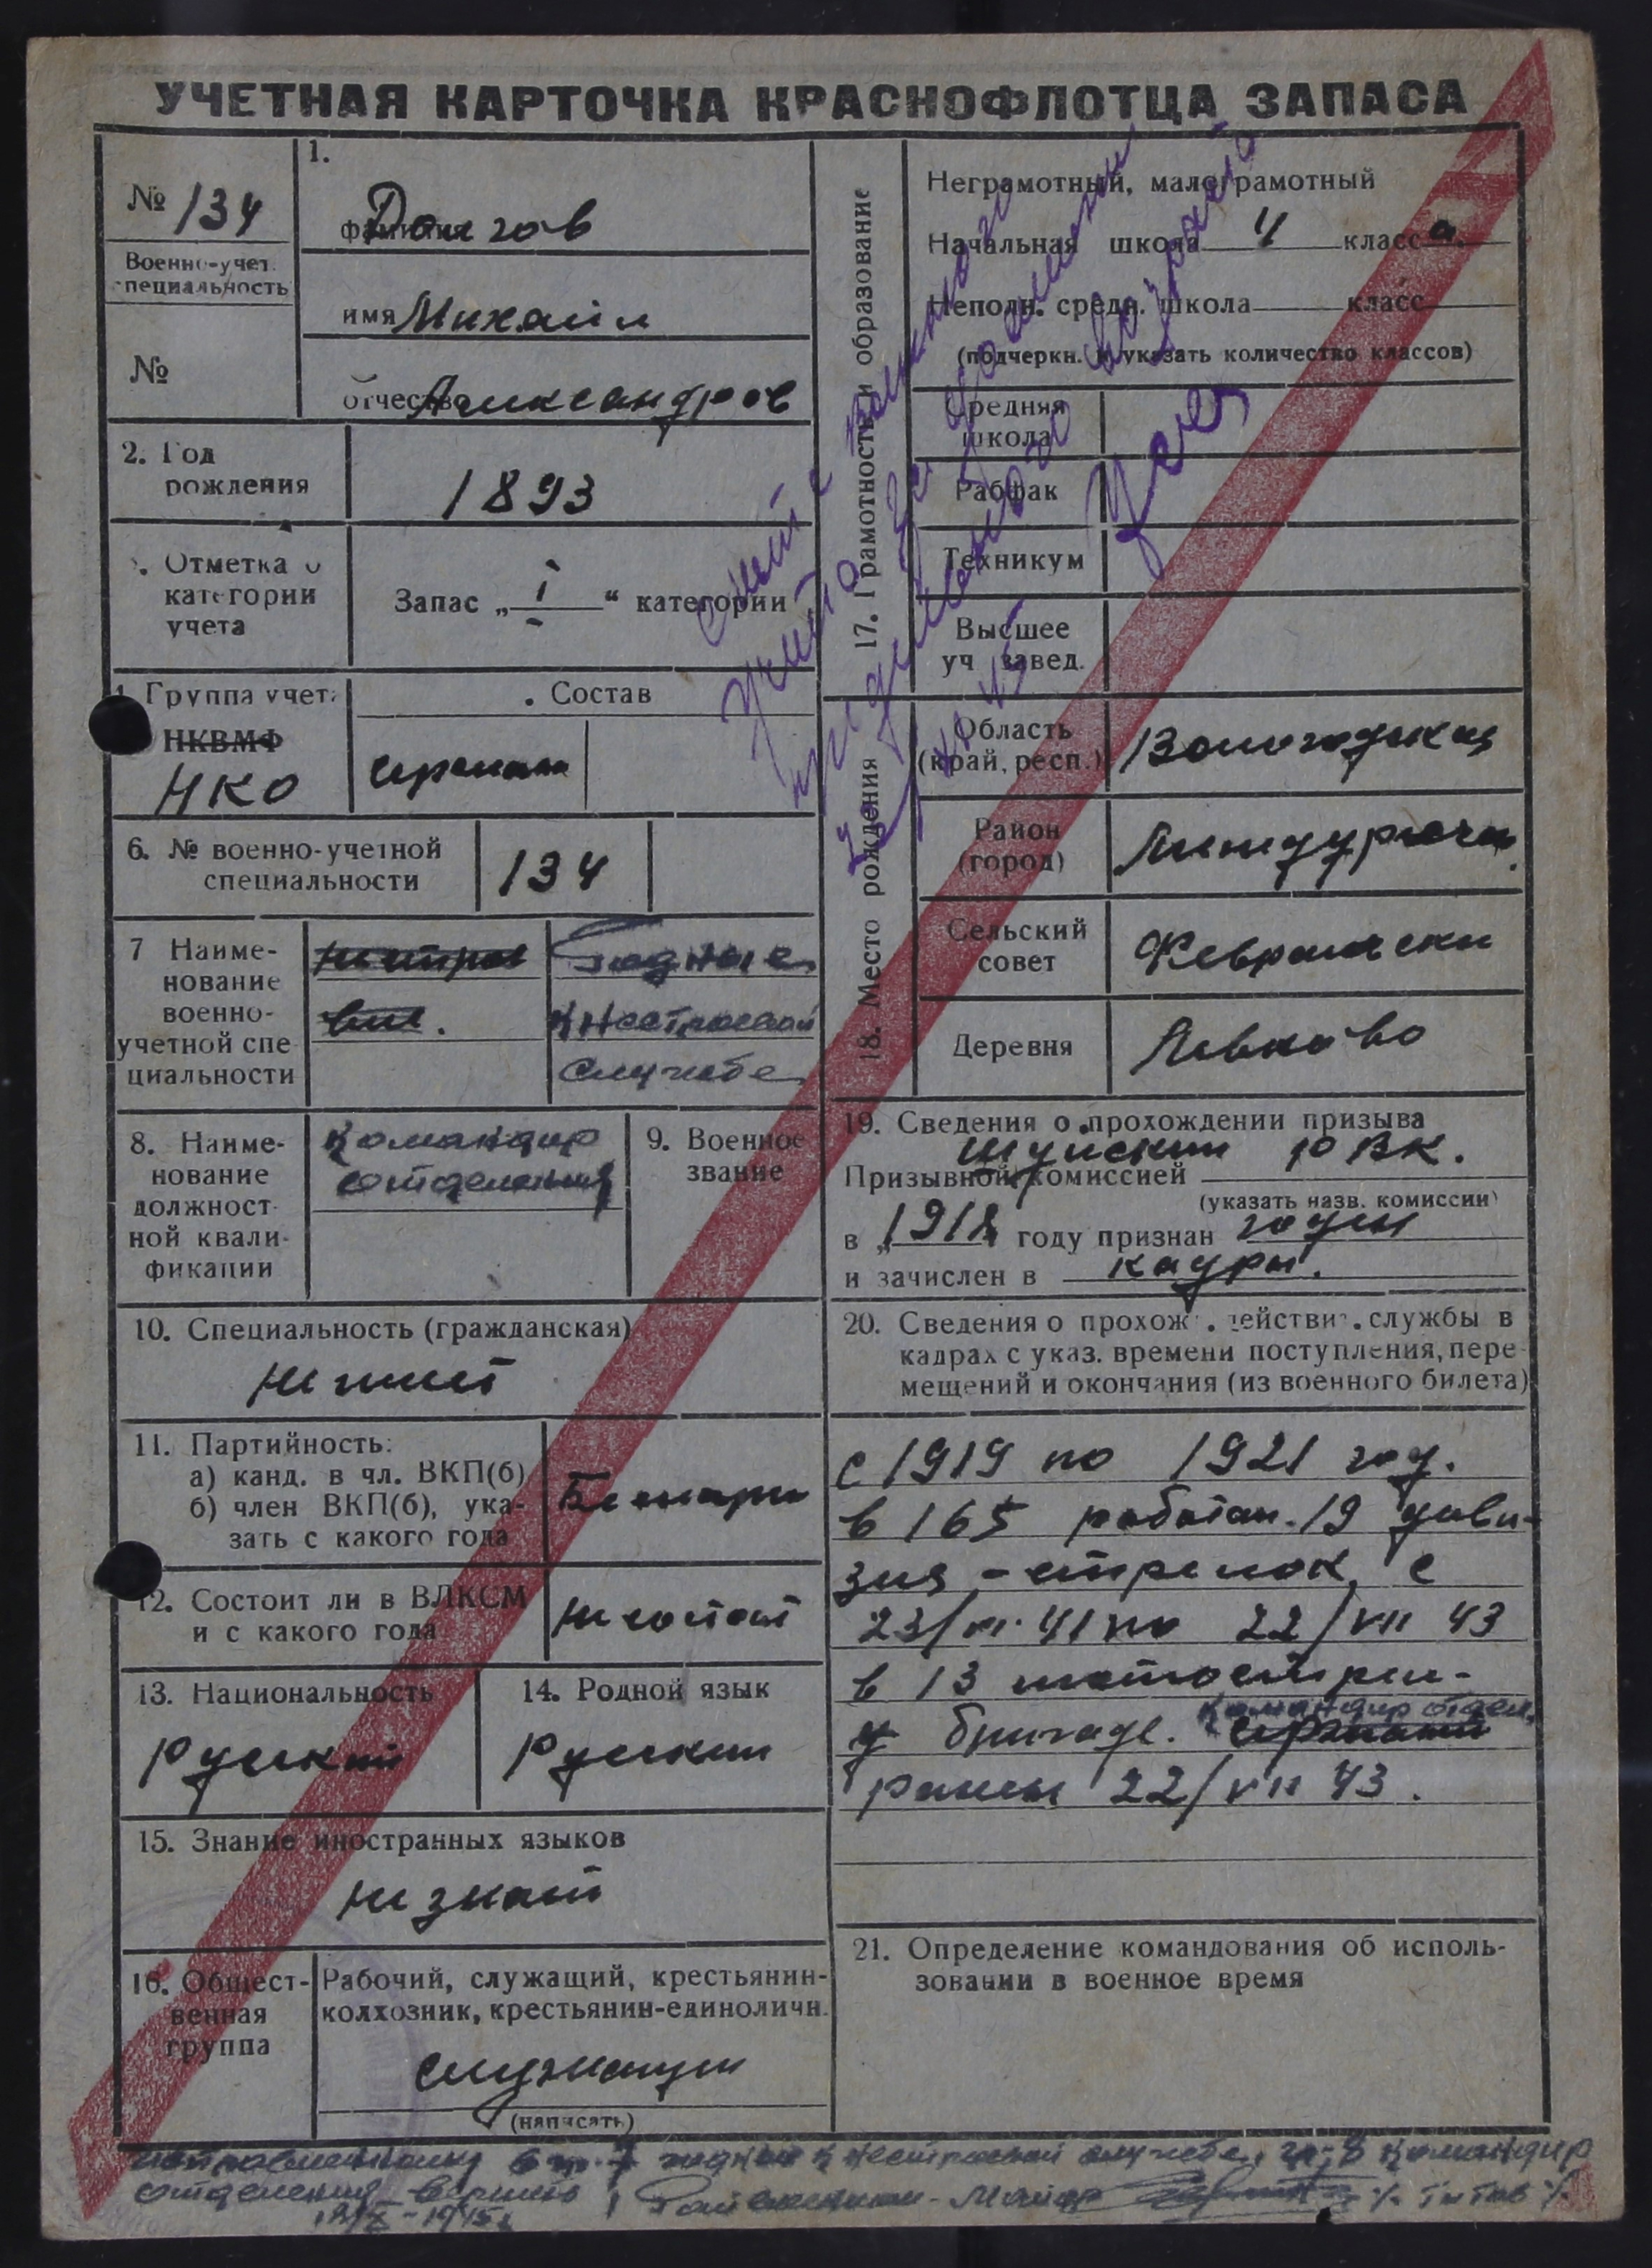 УЧЕТНАЯ КАРТОЧКА КРАСНОФЛОТЦА ЗАПАСА
№ 134
Военно-учет.
специальность
№
1.
фамилия Долгов
имя Михаил
отчество Александров
2. Год
рождения
1893
3. Отметка о
категории
учета
Запас „ I “ категории
4. Группа учета
НКВМФ
НКО
. Состав
сержант
6. № военно-учетной
специальности
134
7 Наиме-
нование
военно-
учетной спе-
циальности
Годные
к нестроевой
службе
8. Наиме-
нование
должност-
ной квали-
фикации
Командир
отделения
9. Военное
звание
10. Специальность (гражданская)
не имеет
11. Партийность:
а) канд. в чл. ВКП(б)
б) член ВКП(б), ука-
зать с какого года
Беспарт
12. Состоит ли в ВЛКСМ
и с какого года
не состоит
13. Национальность
Русский
14. Родной язык
Русский
15. Знание иностранных языков
не знает
16. Общест-
венная
группа
Рабочий, служащий, крестьянин-
колхозник, крестьянин-единоличн.
служащий
(написать)
17. Грамотность и образование
Неграмотный, малограмотный
Начальная школа 4 класса.
Неполн. средн. школа класс
(подчеркн. и указать количество классов)
Средняя
школа
Рабфак
Техникум
Высшее
уч завед.
Снят с воинского
учета за достижением
предельного возраста
18. Место рождения
Область
(край, респ.)
Вологодская
Район
(город)
Междуречен.
Сельский
совет
Февральский
Деревня
Левково
19. Сведения о прохождении призыва
Шуйским РВК.
Призывной комиссией
(указать назв. комиссии)
в „1918 году признан годен
и зачислен в кадры.
20. Сведения о прохож . действит. службы в
кадрах с указ. времени поступления, пере-
мещений и окончания (из военного билета)
с 1919 по 1921 год.
в 165 рабочан. 19 диви-
зия - стрелок, с
23/VI. 41 по 22/VII 43
в 13 мотострел-
командир отдел.
бригаде. сержант
ранен 22/VII 43.
21. Определение командования об исполь-
зовании в военное время
исправленному в гр. 7 годные к нестроевой службе, гр. 8 командир
отделения верить Райвоенком - Майор /. Титов /.